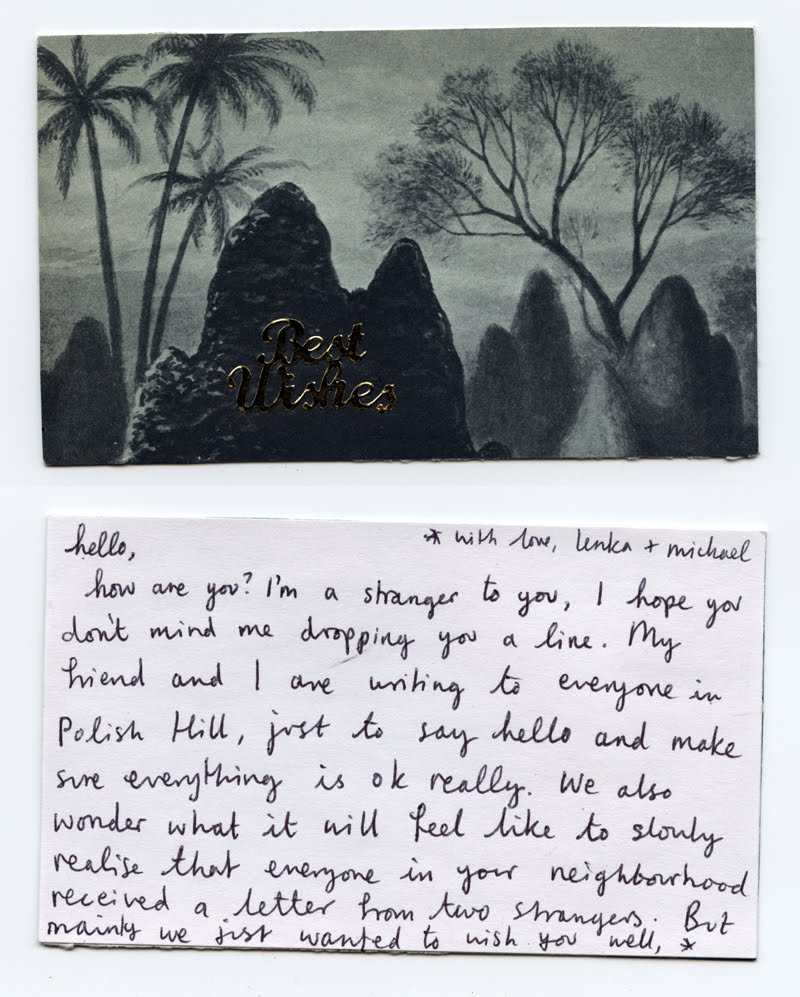 Best
Wishes
hello,
* with love, lenka + michael
how are you? I'm a stranger to you, I hope you
don't mind me dropping you a line. My
friend and I are writing to everyone in
Polish Hill, just to say hello and make
sure everything is ok really. We also
wonder what it will feel like to slowly
realise that everyone in your neighbourhood
received a letter from two strangers. But
mainly we just wanted to wish you well, *